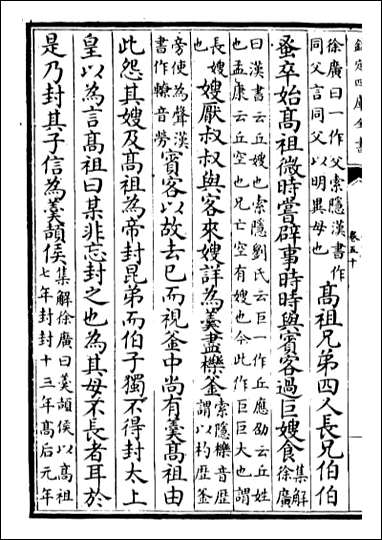 欽定四庫全書
卷五十
徐廣曰一作父索隱漢書作
同父言同父以明異母也
高祖兄弟四人長兄伯伯
蚤卒始高祖微時嘗辟事時時與賓客過巨嫂食
集解
徐廣
曰漢書云丘嫂也索隱劉氏云巨一作丘應劭云丘姓
也孟康云丘空也兄亡空有嫂也今此作巨巨大也謂
長嫂
也
嫂厭叔叔與客來嫂詳為羹盡櫟釜
索隱櫟音歷
謂以杓歷釜
旁使為聲漢
書作轑音勞
賓客以故去已而視釜中尚有羹高祖由
此怨其嫂及高祖為帝封昆弟而伯子獨不得封太上
皇以為言高祖曰某非忘封之也為其母不長者耳於
是乃封其子信為羹頡侯
集解徐廣曰羹頡侯以高祖
七年封封十三年高后元年